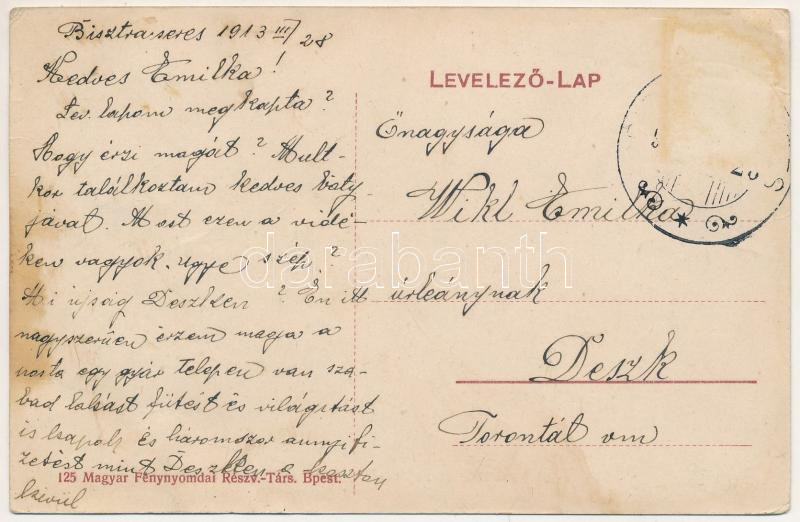 Bisztra-seres 1913 III/28
Kedves Emilka!
Lev. lapom megkapta?
Hogy érzi magát? Mult-
kor találkoztam kedves báty-
jával. Most ezen a vidé-
ken vagyok. Ugye szép?
Mi újság Deszken? Én itt
nagyszerűen érzem magam a
posta egy gyár telepen van sza-
bad lakást fűtést és világítást
is kapok és háromszor annyi fi-
zetést mint Deszken a koszton
kivül
125 Magyar Fénynyomdai Részv.-Társ. Bpest.
LEVELEZŐ-LAP
Őnagysága
Wikl Emilka
úrleánynak
Deszk
Torontál vm
darabanth